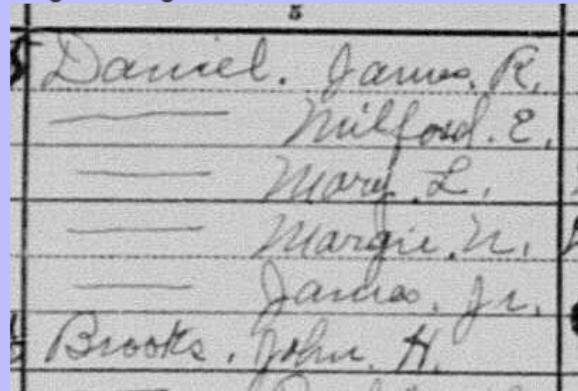 5
Daniel. James. R.
— Milford. E.
— Mary. L.
— Margie. N.
— James. Jr.
Brooks. John. H.